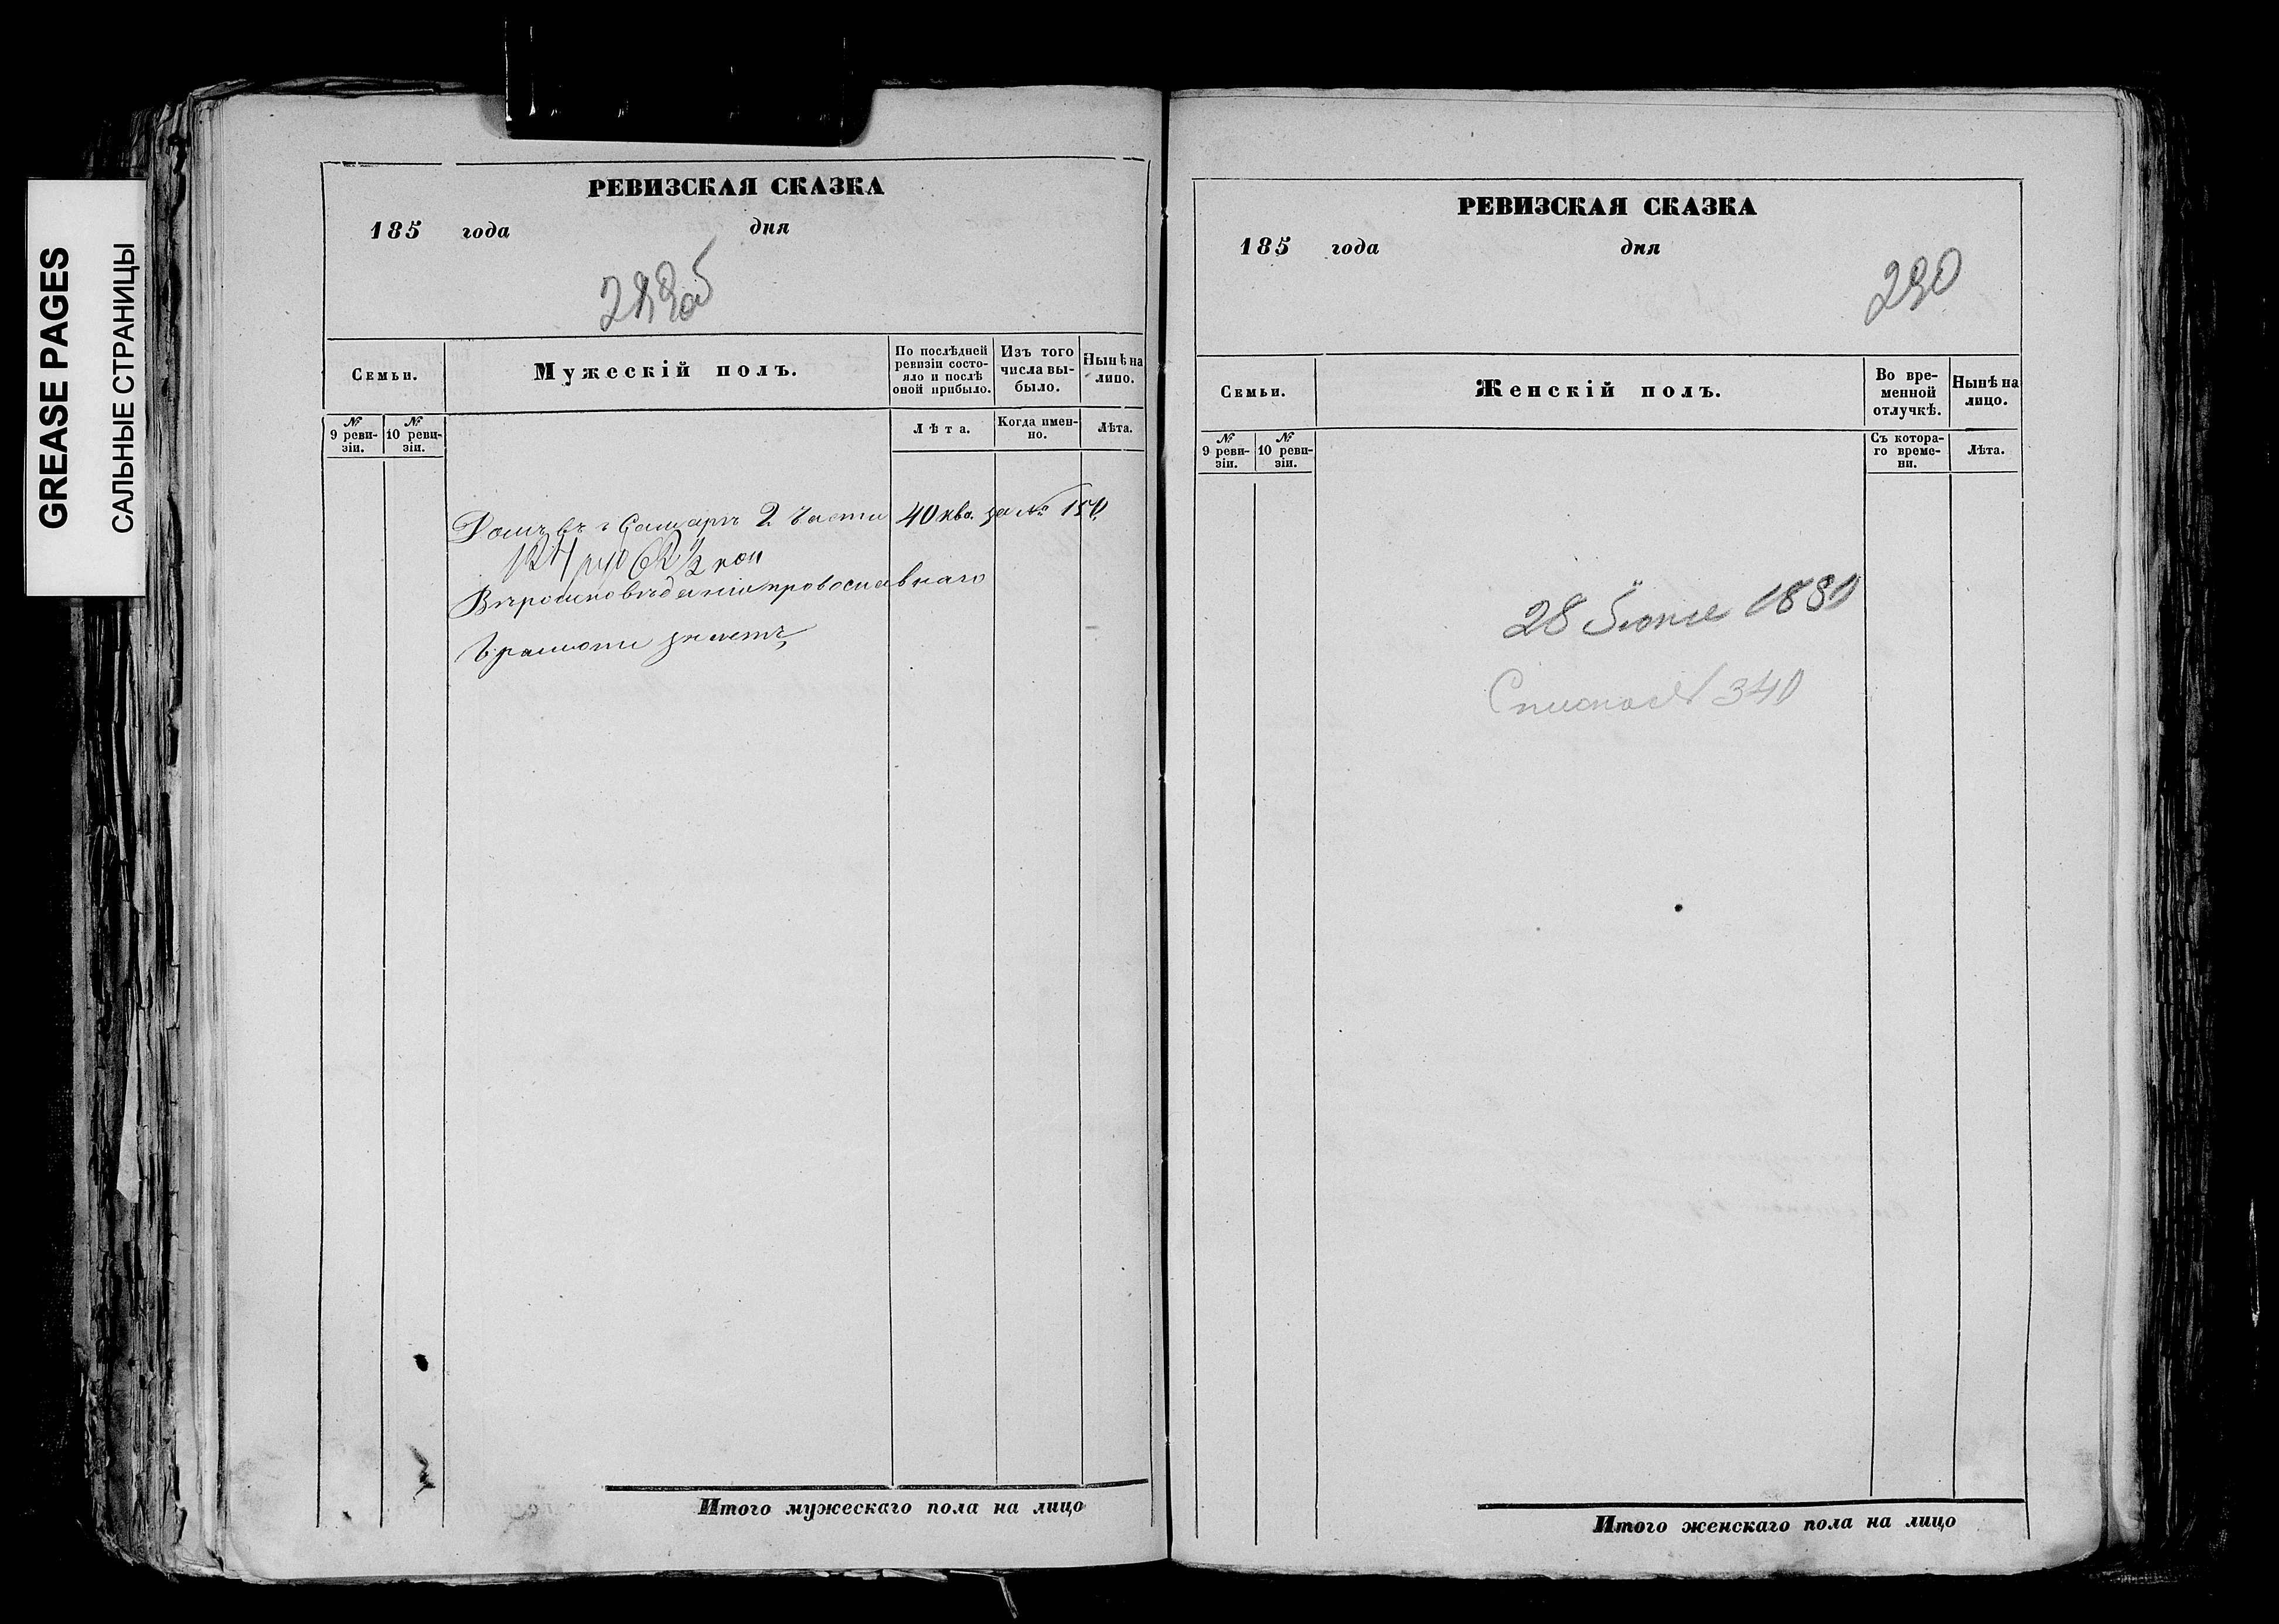 GREASE PAGES
САЛЬНЫЕ СТРАНИЦЫ
РЕВИЗСКАЯ СКАЗКА
185 года дня
Семьи.
Мужескій полъ.
По послѣдней ревизіи состояло и послѣ оной прибыло.
Изъ того числа выбыло.
Нынѣ на лицо.
№ 9 ревизіи.
№ 10 ревизіи.
Лѣта.
Когда именно.
Лѣта.
Домъ въ г Самарѣ 2 части 40 ква. за № 150.
124 руб 62 ½ коп
Вѣроисповѣданія православнаго
Грамоти знаетъ
Итого мужескаго пола на лицо
РЕВИЗСКАЯ СКАЗКА
185 года дня
290
Семьи.
Женскій полъ.
Во временной отлучкѣ.
Нынѣ на лицо.
№ 9 ревизіи.
№ 10 ревизіи.
Съ котораго времени.
Лѣта.
28 Іюня
340
Итого женскаго пола на лицо